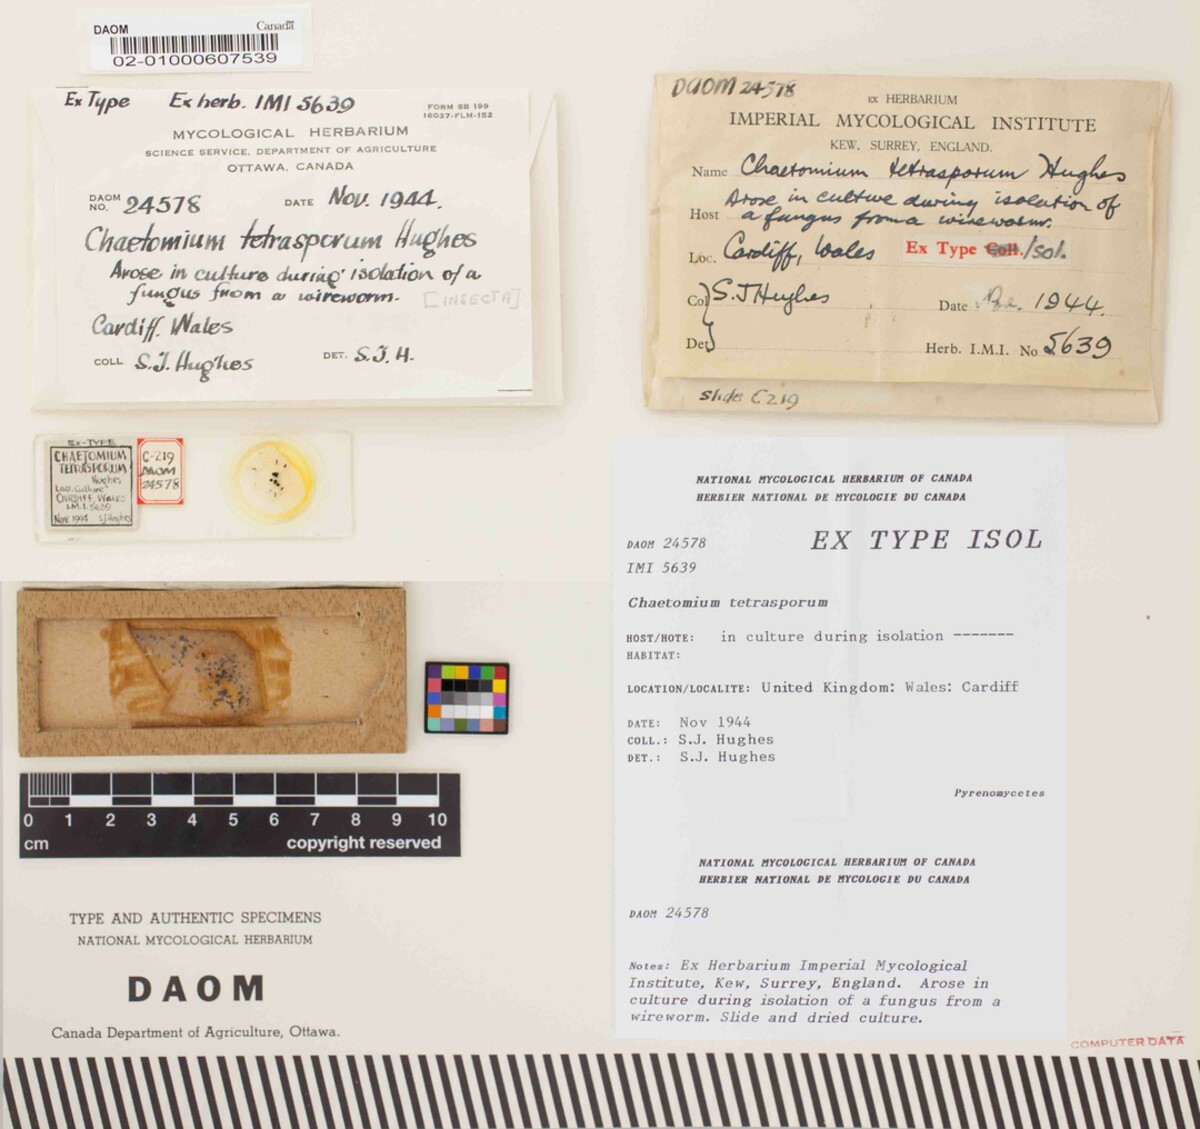 DAOM Canada
02-01000607539
Ex Type Ex herb. IMI 5639
FORM SB 199
16027-FLM-152
MYCOLOGICAL HERBARIUM
SCIENCE SERVICE, DEPARTMENT OF AGRICULTURE
OTTAWA, CANADA
DAOM NO. 24578 DATE Nov. 1944.
Chaetomium tetrasporum Hughes
Arose in culture during isolation of a
fungus from a wireworm.
[INSECTA]
Cardiff. Wales
COLL S.J. Hughes DET. S.J.H.
DAOM 24578
EX HERBARIUM
IMPERIAL MYCOLOGICAL INSTITUTE
KEW, SURREY, ENGLAND.
Name Chaetomium tetrasporum Hughes
Host Arose in culture during isolation of
a fungus from a wireworm.
Loc. Cardiff, Wales Ex Type Coll./isol.
Col S.J Hughes Date 1944.
Det Herb. I.M.I. No 5639
slide C219
Ex-TYPE
CHAETOMIUM
TETRASPORUM
Hughes
Lab. Culture
CARDIFF, WALES
I.M.I. 5639
Nov S J Hughes
C-219
DAOM
24578
NATIONAL MYCOLOGICAL HERBARIUM OF CANADA
HERBIER NATIONAL DE MYCOLOGIE DU CANADA
DAOM 24578 EX TYPE ISOL
IMI 5639
Chaetomium tetrasporum
HOST/HOTE: in culture during isolation -------
HABITAT:
LOCATION/LOCALITE: United Kingdom: Wales: Cardiff
DATE: Nov 1944
COLL.: S.J. Hughes
DET.: S.J. Hughes
Pyrenomycetes
NATIONAL MYCOLOGICAL HERBARIUM OF CANADA
HERBIER NATIONAL DE MYCOLOGIE DU CANADA
DAOM 24578
Notes: Ex Herbarium Imperial Mycological
Institute, Kew, Surrey, England. Arose in
culture during isolation of a fungus from a
wireworm. Slide and dried culture.
0 1 2 3 4 5 6 7 8 9 10
cm copyright reserved
TYPE AND AUTHENTIC SPECIMENS
NATIONAL MYCOLOGICAL HERBARIUM
DAOM
Canada Department of Agriculture, Ottawa.
COMPUTER DATA